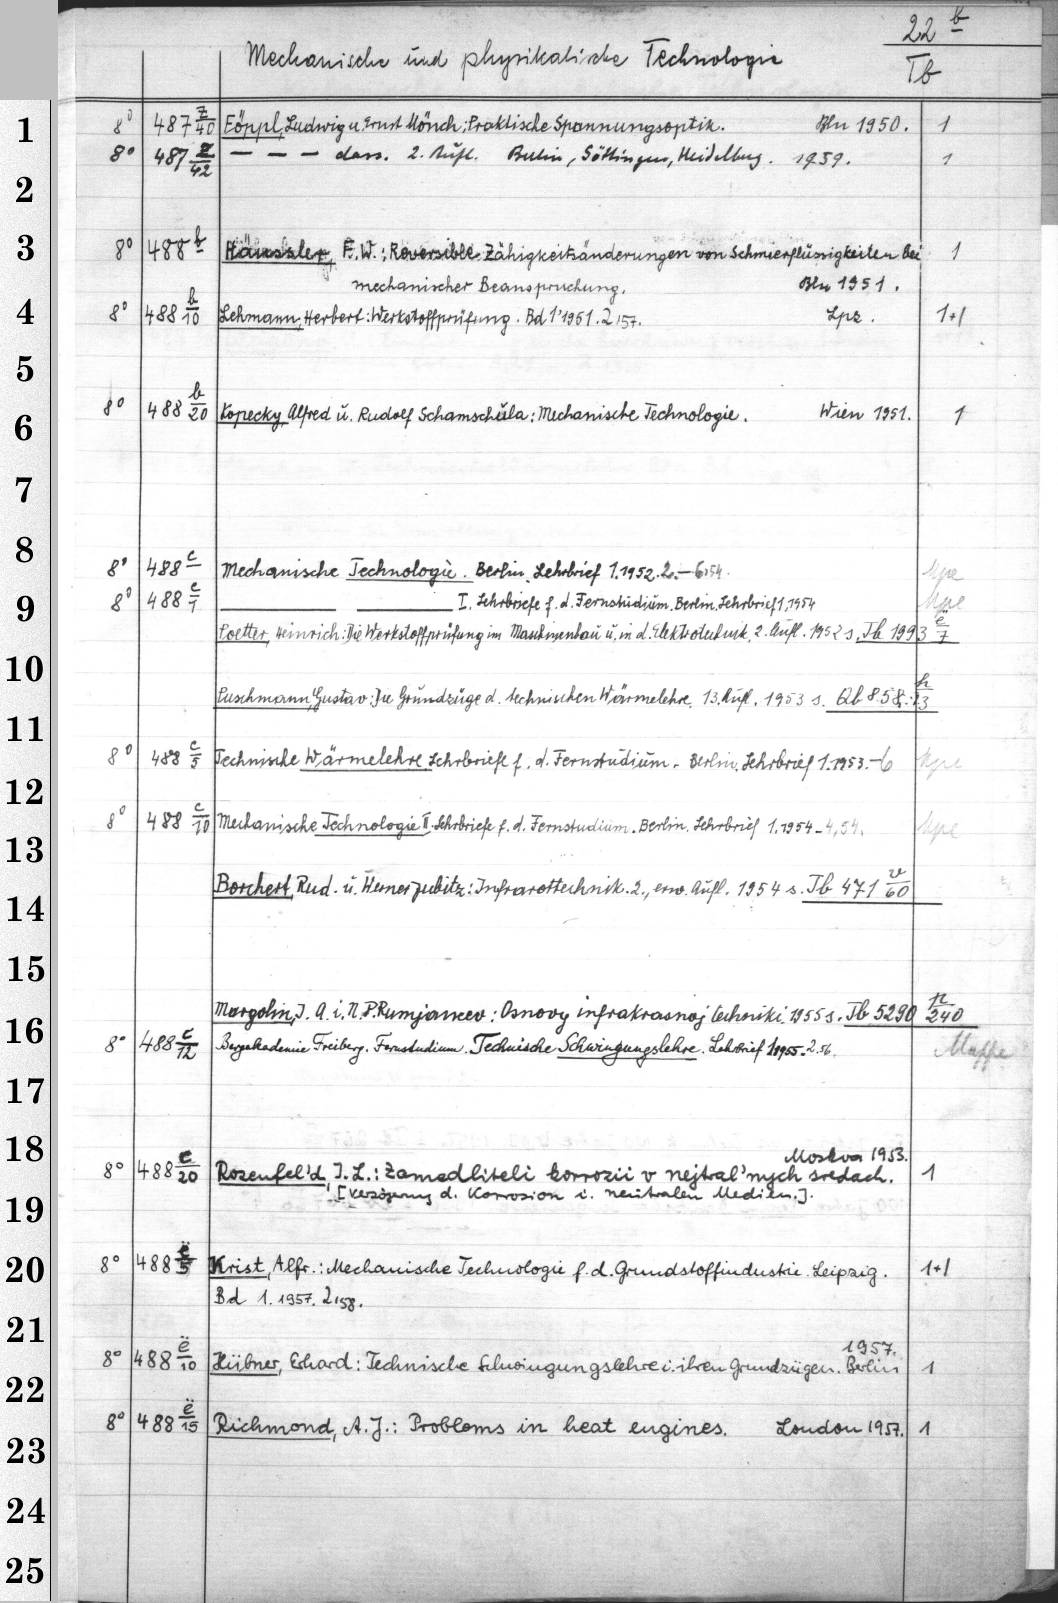 22 b
Mechanische und physikalische Technologie
Tb
1 8° 487 z/40 Föppl, Ludwig u. Ernst Mönch: Praktische Spannungsoptik. Bln 1950. 1
8° 487 z/42 — — — dass. 2. Aufl. Berlin, Göttingen, Heidelberg. 1959. 1
2
3 8° 488 b Häussler, F. W.: Reversible Zähigkeitsänderungen von Schmierflüssigkeiten bei 1
mechanischer Beanspruchung. Bln 1951.
4 8° 488 b/10 Lehmann, Herbert: Werkstoffprüfung. Bd 1 1961. 2,57. Lpz. 1+1
5
6 8° 488 b/20 Kopecky, Alfred u. Rudolf Schamschula: Mechanische Technologie. Wien 1951. 1
7
8
8° 488 c Mechanische Technologie. Berlin. Lehrbrief 1.1952. 2.–6,54. Mpe
9 8° 488 c/1 ——— ——— I. Lehrbriefe f. d. Fernstudium. Berlin. Lehrbrief 1, 1954 Mpe
Loetter, Heinrich: Die Werkstoffprüfung im Maschinenbau u. in d. Elektrotechnik. 2. Aufl. 1952 s. Tb 1993 ë/7
10
Puschmann, Gustav: Die Grundzüge d. technischen Wärmelehre. 13. Aufl. 1953 s. Qb 858 h/23
11
8° 488 c/5 Technische Wärmelehre. Lehrbriefe f. d. Fernstudium. Berlin. Lehrbrief 1.1953.–6 Mpe
12
8° 488 c/10 Mechanische Technologie II. Lehrbriefe f. d. Fernstudium. Berlin. Lehrbrief 1.1954–4,54. Mpe
13
Borchert, Rud. u. Werner Jubitz: Infrarottechnik. 2., erw. Aufl. 1954 s. Tb 471 v/60
14
15
Margolin, I. A. i. N. P. Rumjancev: Osnovy infrakrasnoj techniki. 1955 s. Tb 5290 n/240
16 8° 488 c/12 Bergakademie Freiberg. Fernstudium. Technische Schwingungslehre. Lehrbrief 1,1955–2.56. Mappe
17
18 Moskva 1953.
8° 488 c/20 Rozenfel'd, I. L.: Zamedliteli korrozii v nejtral'nych sredach. 1
[Verzögerung d. Korrosion i. neutralen Medien.].
19
20 8° 488 ë/5 Krist, Alfr.: Mechanische Technologie f. d. Grundstoffindustrie. Leipzig. 1+1
Bd 1. 1957. 2,58.
21
1957.
8° 488 ë/10 Hübner, Erhard: Technische Schwingungslehre i. ihren Grundzügen. Berlin 1
22
8° 488 ë/15 Richmond, A. J.: Problems in heat engines. London 1957. 1
23
24
25